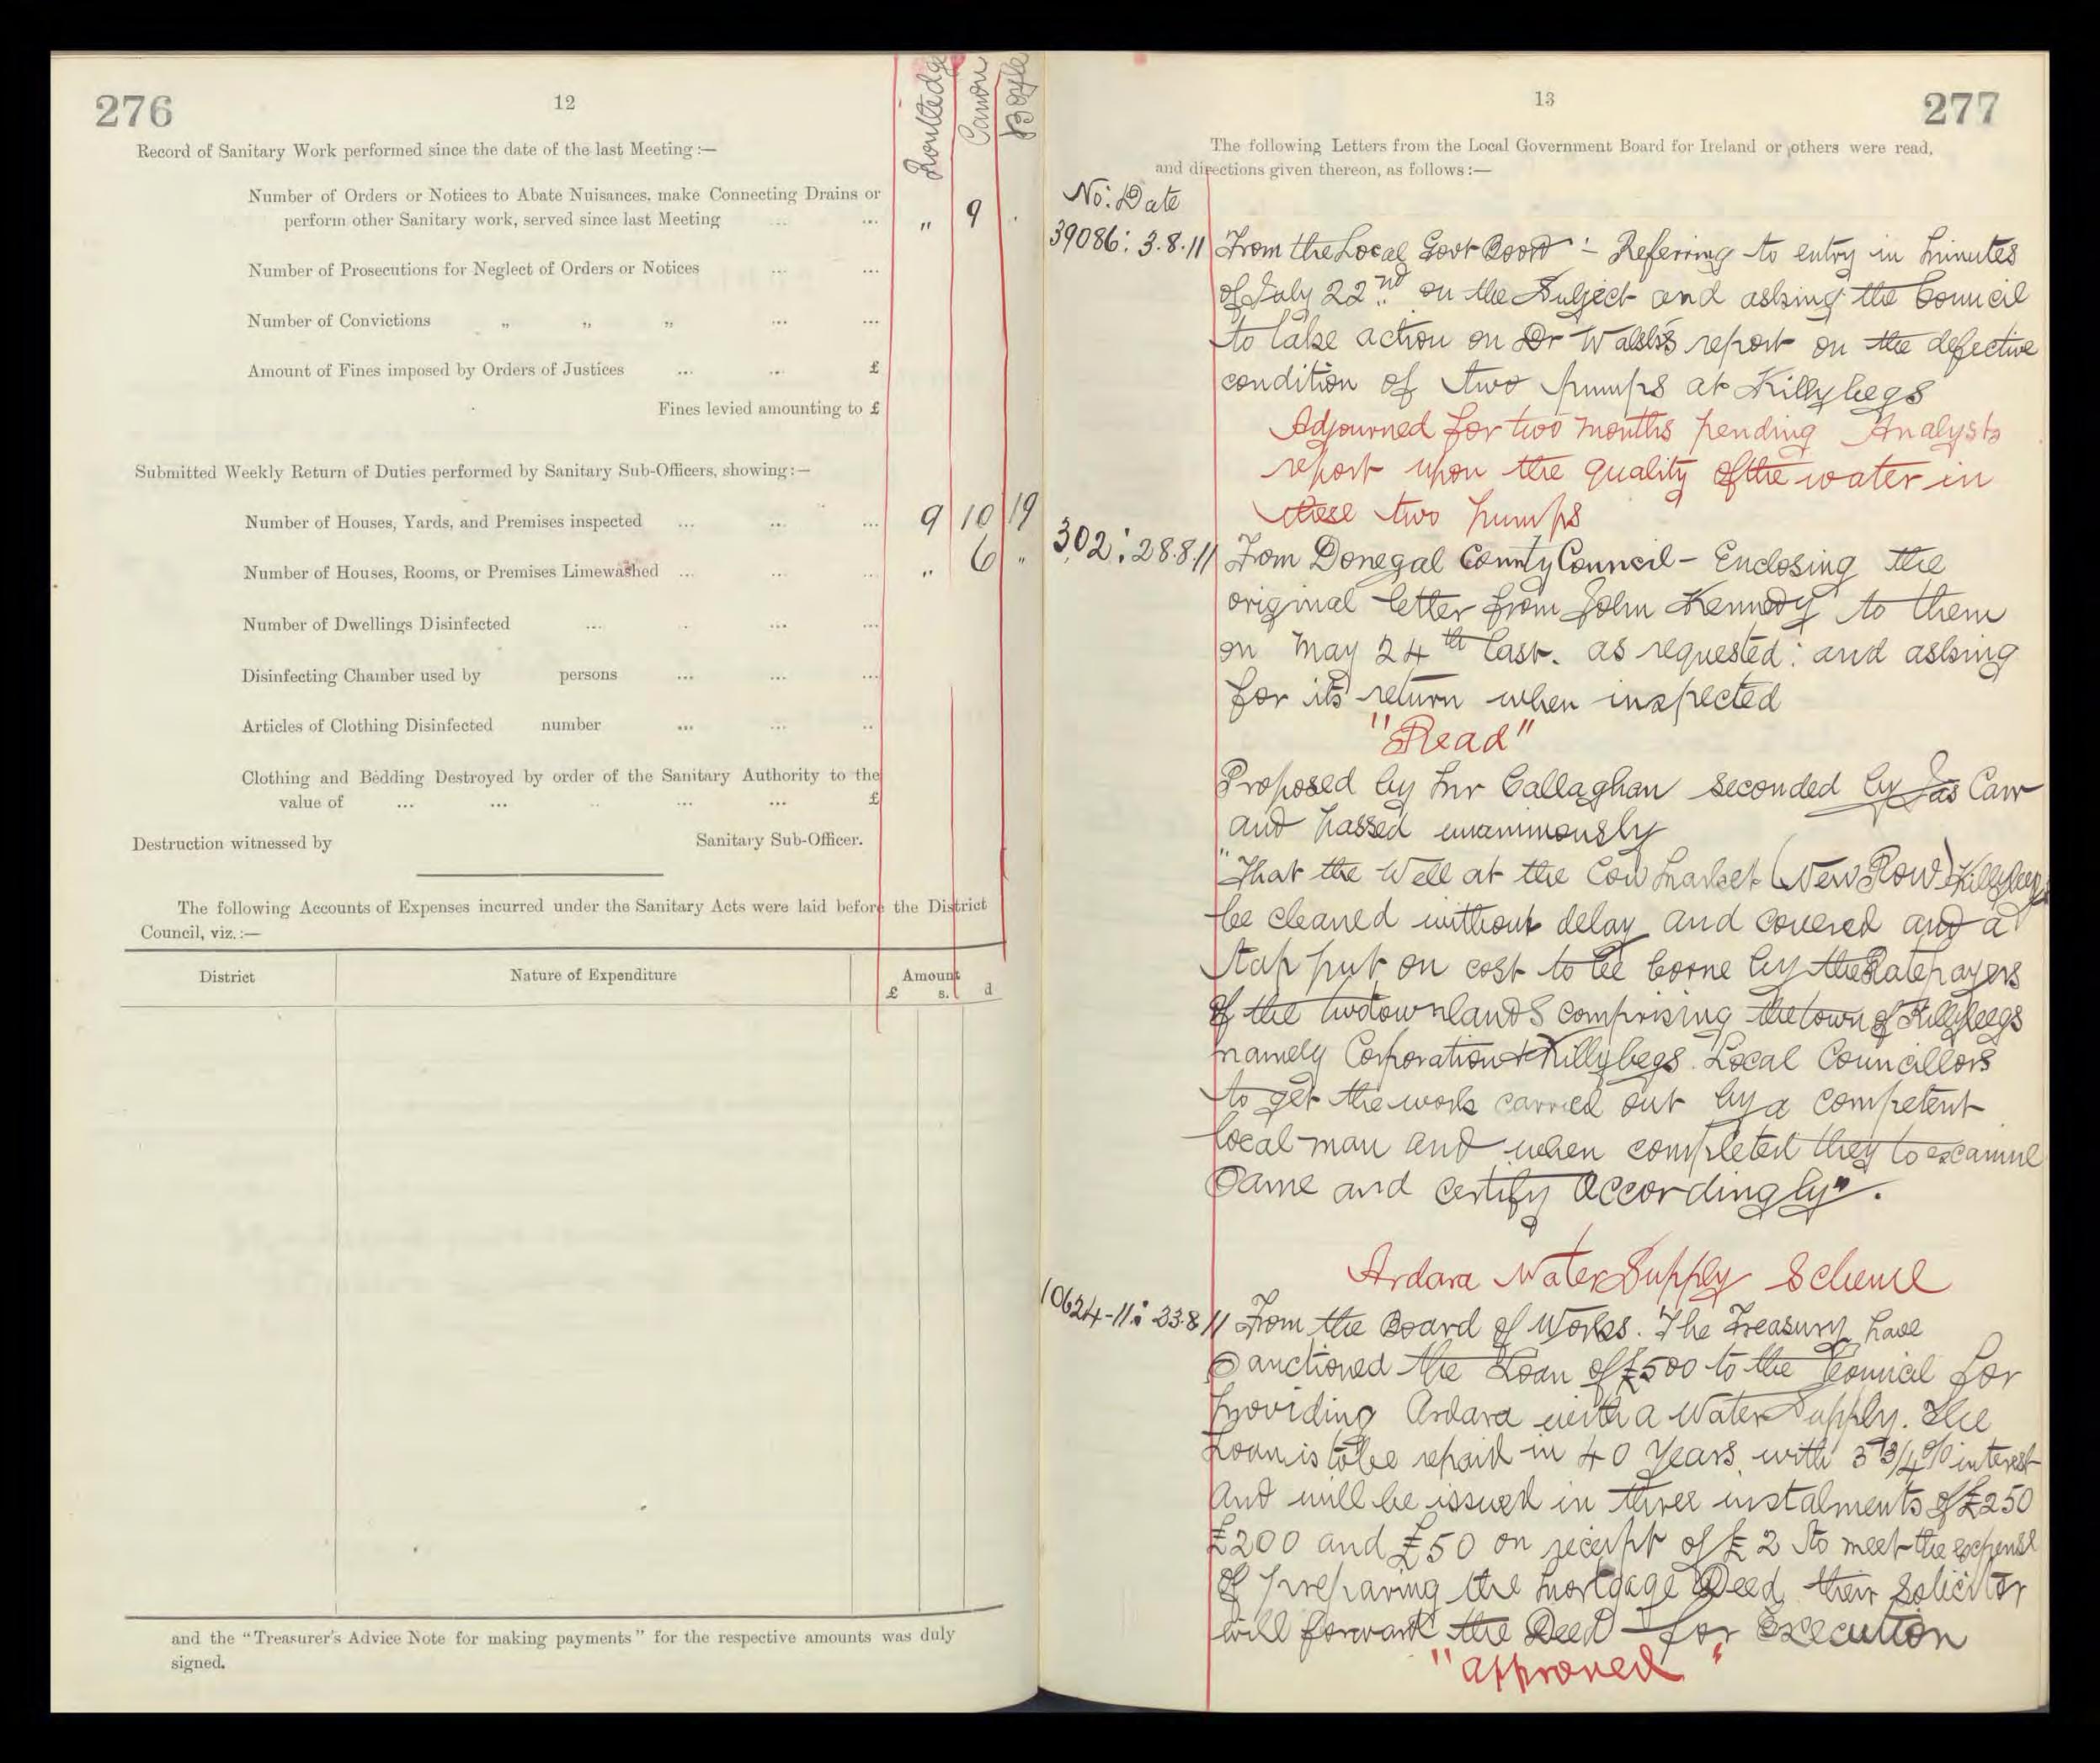 276
12
Routledge Canon Boyle
Record of Sanitary Work performed since the date of the last Meeting :—
Number of Orders or Notices to Abate Nuisances, make Connecting Drains or
perform other Sanitary work, served since last Meeting ... ... „ 9
Number of Prosecutions for Neglect of Orders or Notices ... ...
Number of Convictions „ „ „ ... ...
Amount of Fines imposed by Orders of Justices ... ... £
Fines levied amounting to £
Submitted Weekly Return of Duties performed by Sanitary Sub-Officers, showing:—
Number of Houses, Yards, and Premises inspected ... ... ... 9 10 19
Number of Houses, Rooms, or Premises Limewashed ... ... ... „ 6 „
Number of Dwellings Disinfected ... ... ...
Disinfecting Chamber used by persons ... ... ...
Articles of Clothing Disinfected number ... ... ...
Clothing and Bedding Destroyed by order of the Sanitary Authority to the
value of ... ... ... ... ... £
Destruction witnessed by Sanitary Sub-Officer.
The following Accounts of Expenses incurred under the Sanitary Acts were laid before the District
Council, viz. :—
District Nature of Expenditure Amount
£ s. d
and the "Treasurer's Advice Note for making payments" for the respective amounts was duly
signed.
13
277
The following Letters from the Local Government Board for Ireland or others were read,
and directions given thereon, as follows :—
No: Date
39086: 3.8.11 From the Local Govt Board :- Referring to entry in Minutes
of July 22nd on the Subject and asking the Council
to take action on Dr Walsh's report on the defective
condition of two pumps at Killybegs
Adjourned for two months pending Analysts
report upon the quality of the water in
these two pumps
302: 28.8.11 From Donegal County Council - Enclosing the
original letter from John Kennedy to them
on May 24th last. as requested: and asking
for its return when inspected
"Read"
Proposed by Mr Callaghan seconded by Jas Carr
and passed unanimously
"That the Well at the Cow Market (New Row) Killybegs
be cleaned without delay and covered and a
tap put on cost to be borne by the Ratepayers
of the two townlands comprising the town of Killybegs
namely Corporation & Killybegs. Local Councillors
to get the work carried out by a competent
local man and when completed they to examine
Same and certify accordingly".
Ardara Water Supply Scheme
10624-11: 23.8.11 From the Board of Works. The Treasury have
Sanctioned the Loan of £500 to the Council for
providing Ardara with a Water Supply. The
Loan is to be repaid in 40 Years with 3 3/4 % interest
and will be issued in three instalments of £250
£200 and £50 on receipt of £2 to meet the expense
of preparing the Mortgage Deed their Solicitor
will forward the Deed for Execution
"approved"